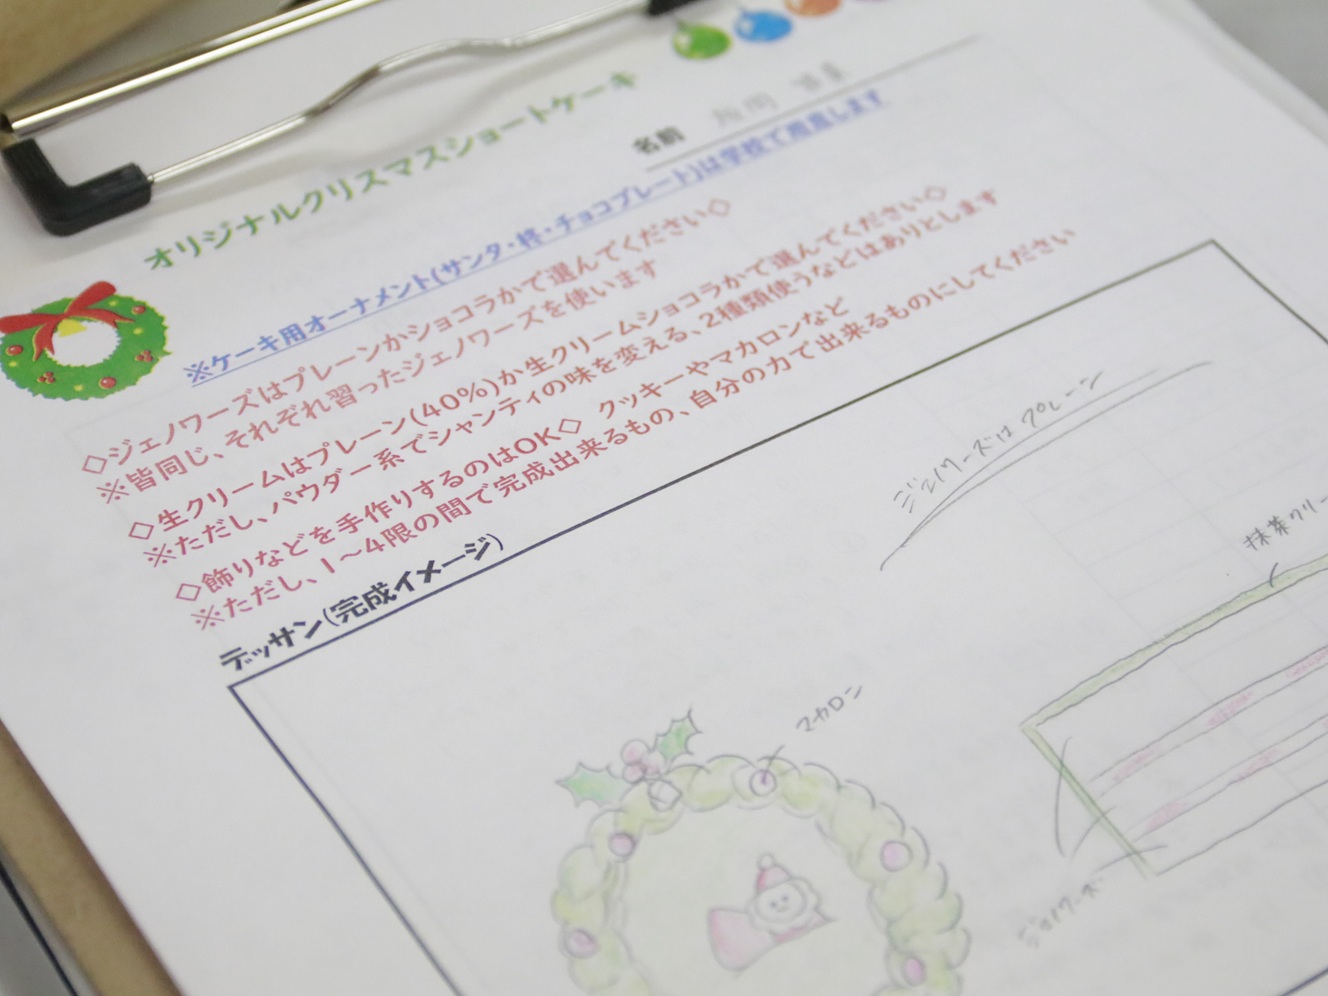 オリジナルクリスマスショートケーキ
名前
※ケーキ用オーナメント(サンタ・柊・チョコプレート)は学校で用意します
◇ジェノワーズはプレーンかショコラかで選んでください◇
※皆同じ、それぞれ習ったジェノワーズを使います
◇生クリームはプレーン(40%)か生クリームショコラかで選んでください◇
※ただし、パウダー系でシャンティの味を変える、2種類使うなどはありとします
◇飾りなどを手作りするのはOK◇ クッキーやマカロンなど
※ただし、1～4限の間で完成出来るもの、自分の力で出来るものにしてください
デッサン(完成イメージ)
ジェノワーズは プレーン
抹茶クリー
マカロン
ジェノワーズ